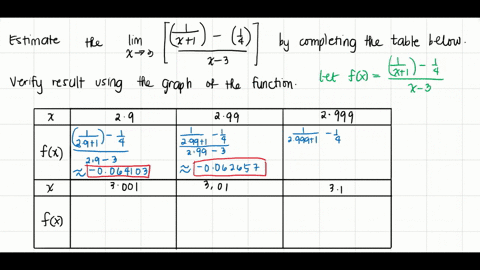 Estimate the lim x→3 [((1/(x+1)) - (1/4))/(x-3)] by completing the table below.
Verify result using the graph of the function. Let f(x) = ((1/(x+1)) - 1/4)/(x-3)
x 2.9 2.99 2.999
f(x) ((1/(2.9+1)) - 1/4)/(2.9-3) ≈ -0.064103 (1/(2.99+1) - 1/4)/(2.99-3) ≈ -0.062657 1/(2.999+1) - 1/4
x 3.001 3.01 3.1
f(x)